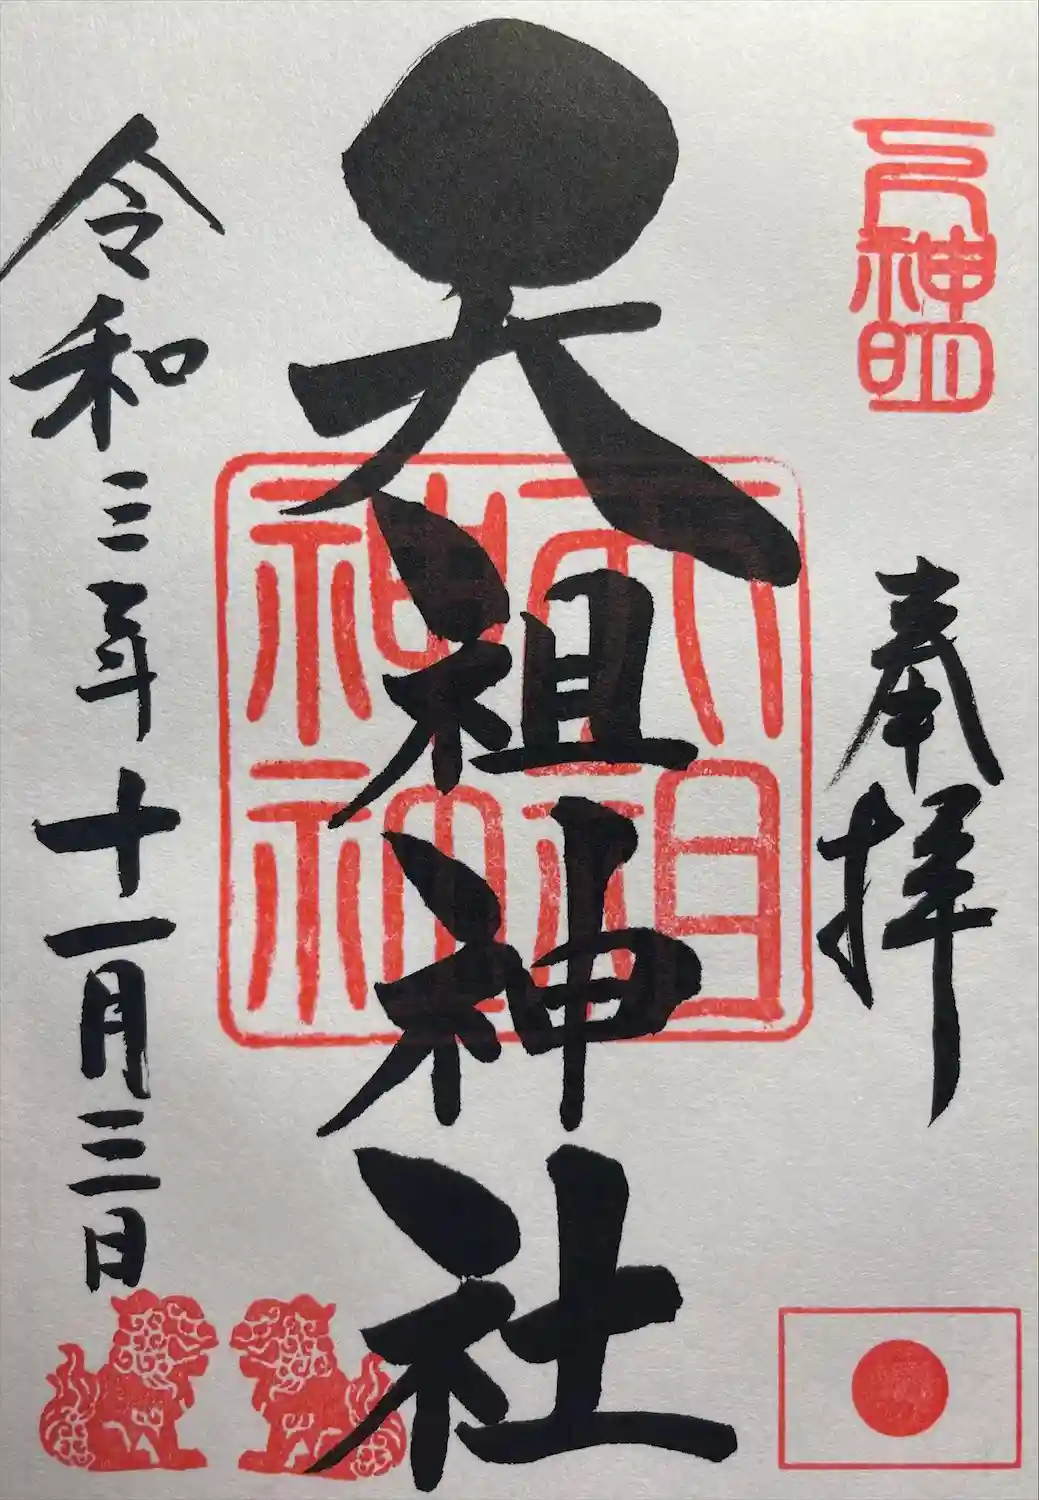 下神明
奉拝
天祖神社
天祖
神社
令和三年十一月三日